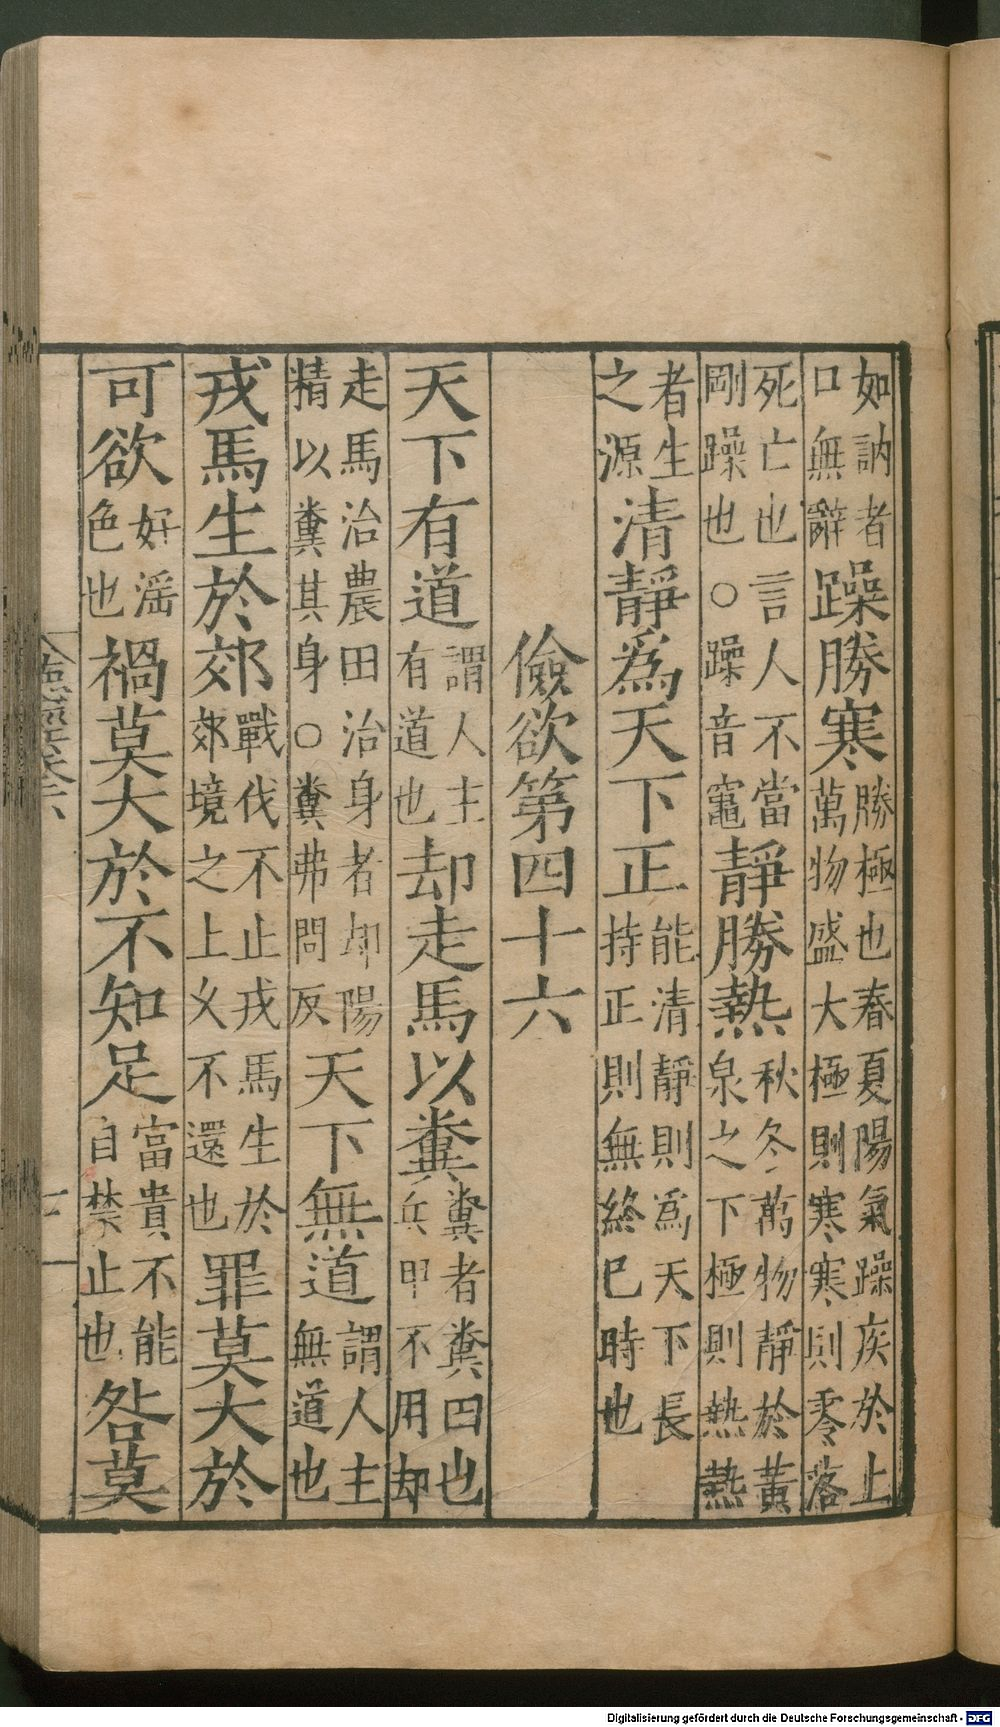 如訥者口無辭躁勝寒勝極也春夏陽氣躁疾於上萬物盛大極則寒寒則零落
死亡也言人不當剛躁也○躁音竈靜勝熱秋冬萬物靜於黃泉之下極則熱熱
者生之源清靜爲天下正能清靜則爲天下長持正則無終已時也
儉欲第四十六
天下有道謂人主有道也却走馬以糞糞者糞田也兵甲不用却
走馬治農田治身者却陽精以糞其身○糞弗問反天下無道謂人主無道也
戎馬生於郊戰伐不止戎馬生於郊境之上乆不還也罪莫大於
可欲好滛色也禍莫大於不知足富貴不能自禁止也咎莫
Digitalisierung gefördert durch die Deutsche Forschungsgemeinschaft - DFG